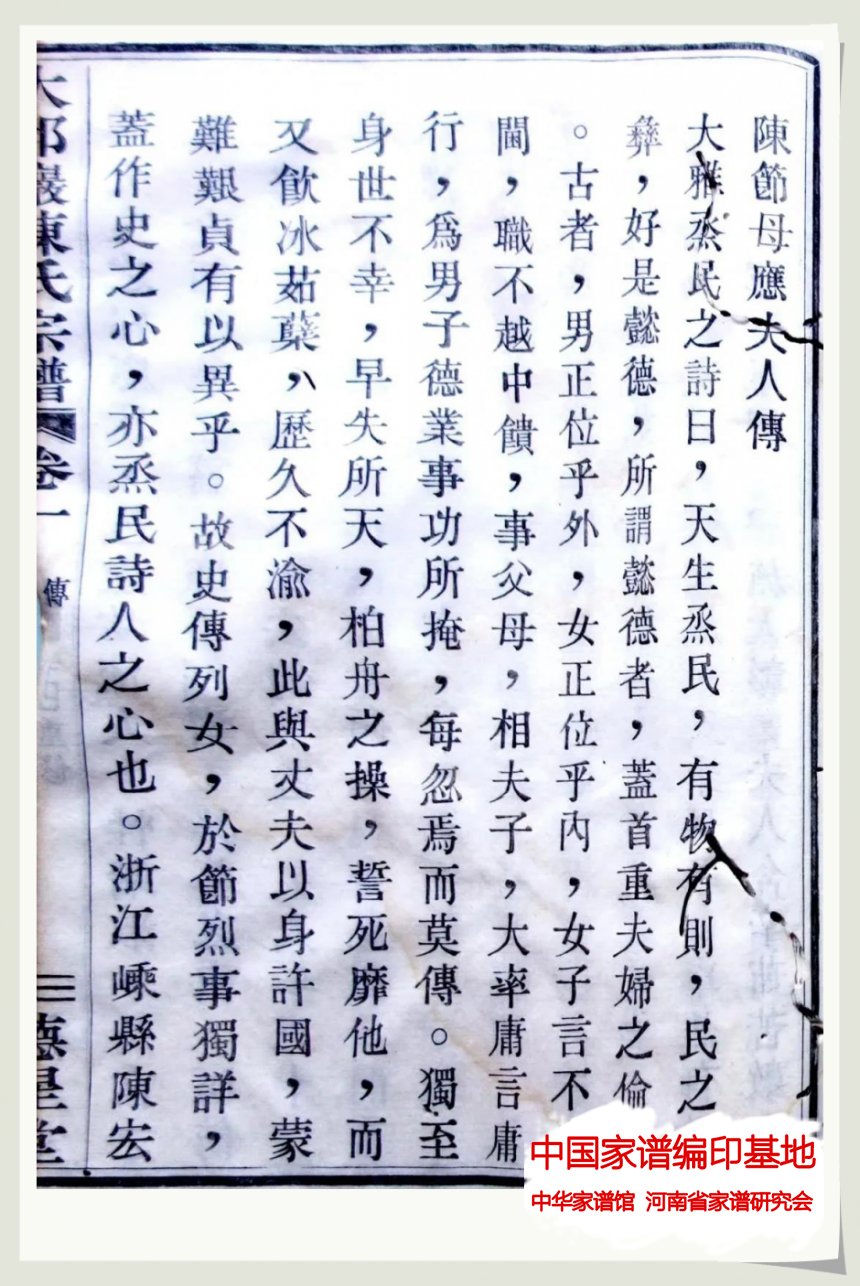 陳節母應夫人傳
大雅烝民之詩曰，天生烝民，有物有則，民之
彝，好是懿德，所謂懿德者，蓋首重夫婦之倫
。古者，男正位乎外，女正位乎內，女子言不
閫，職不越中饋，事父母，相夫子，大率庸言庸
行，爲男子德業事功所掩，每忽焉而莫傳。獨至
身世不幸，早失所天，柏舟之操，誓死靡他，而
又飮冰茹蘗，歷久不渝，此與丈夫以身許國，蒙
難艱貞有以異乎。故史傳列女，於節烈事獨詳，
蓋作史之心，亦烝民詩人之心也。浙江嵊縣陳宏
陳氏宗譜 卷一 傳 三 德星堂
中国家谱编印基地
中华家谱馆 河南省家谱研究会